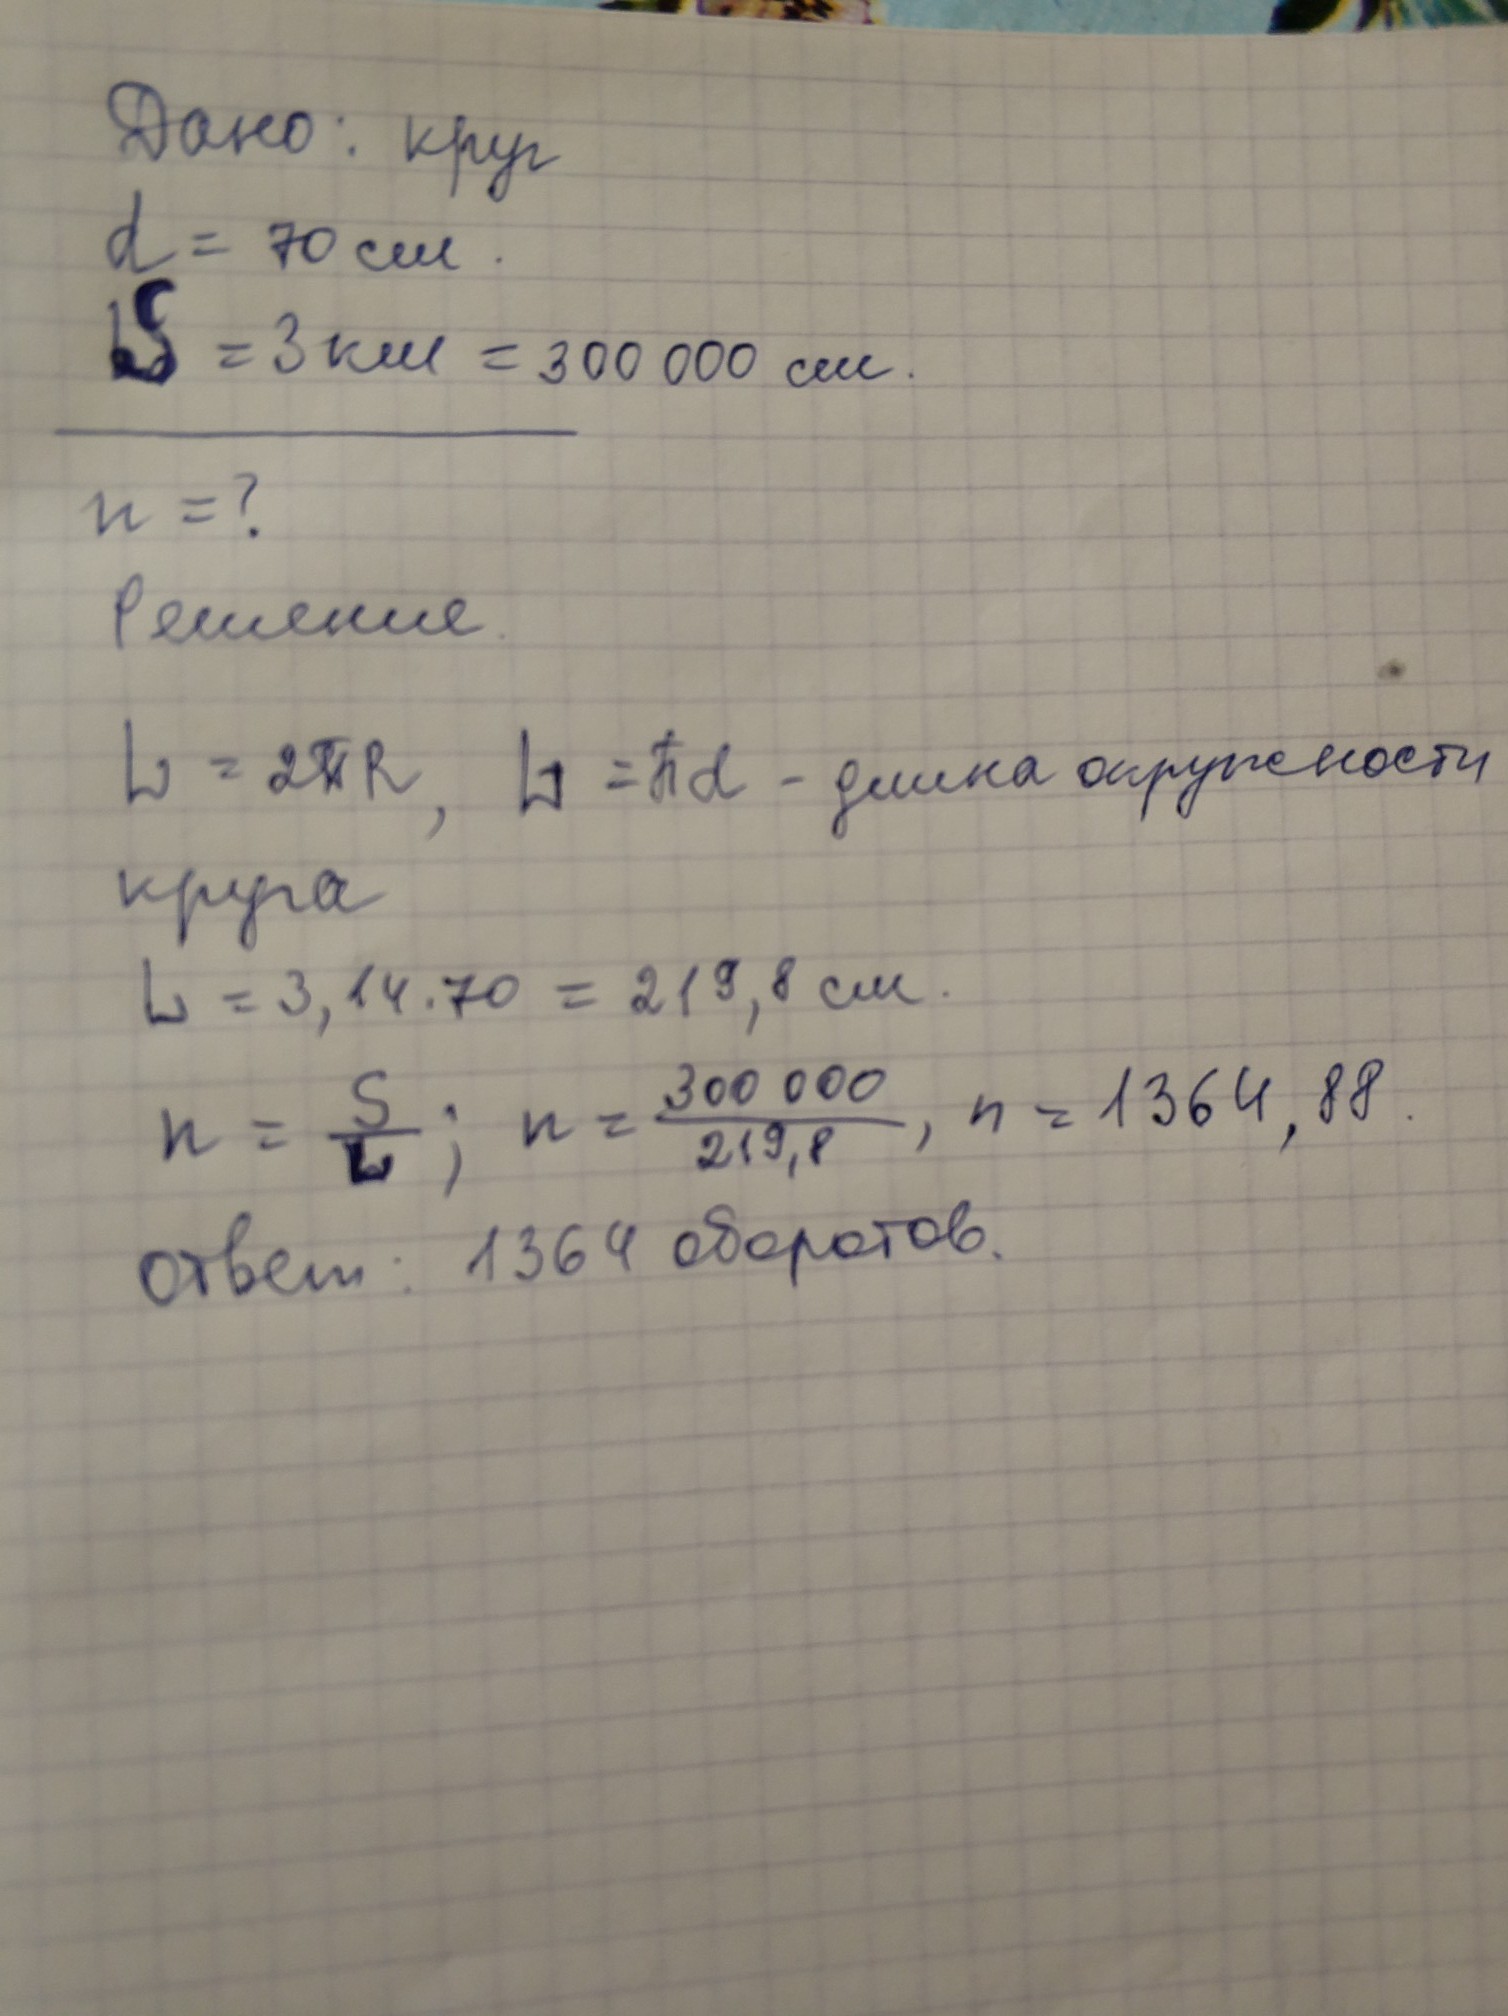 Дано: круг
d = 70 см.
S = 3 км = 300 000 см.
n = ?
Решение.
L = 2πR, L = πd - длина окружности
круга
L = 3,14 . 70 = 219,8 см.
n = S/L; n = 300 000/219,8, n = 1364,88.
ответ: 1364 оборотов.